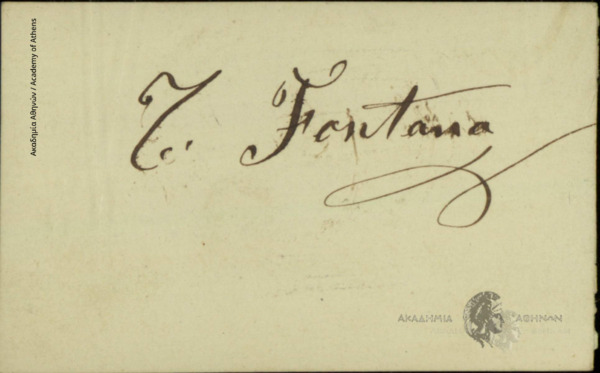 Ακαδημία Αθηνών / Academy of Athens
T. Fontana
ΑΚΑΔΗΜΙΑ ΑΘΗΝΩΝ